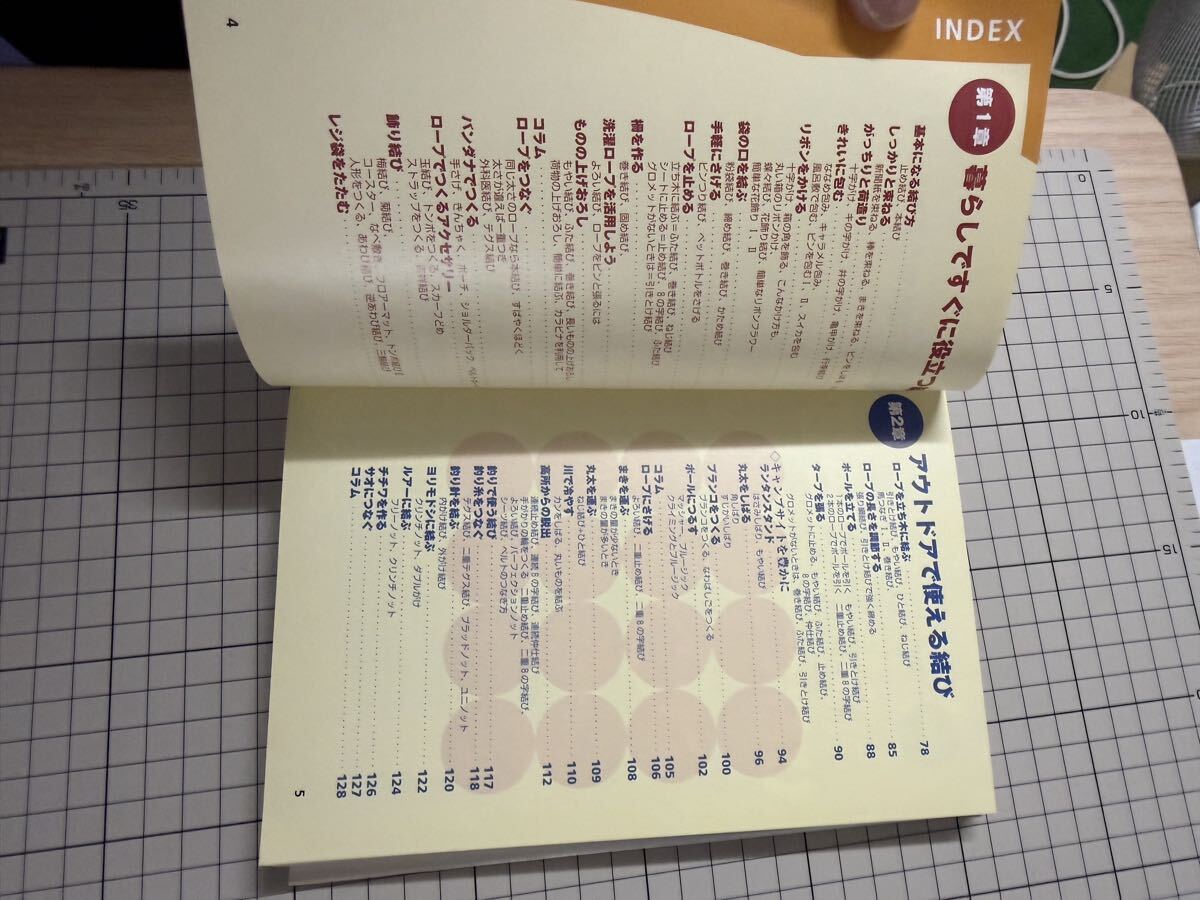 INDEX
第1章 暮らしですぐに役立つ
基本になる結び方
止め結び、本結び
しっかりと束ねる
新聞紙を束ねる、棒を束ねる、まきを束ねる、ビンをしばる
がっちりと荷造り
十字がけ、キの字がけ、井の字がけ、亀甲がけ、
きれいに包む
ななめ包み、キャラメル包み、
風呂敷で包む、ビンを包むⅠ、Ⅱ、スイカを包む
リボンをかける
十字がけ、箱の角を飾る、こんなかけ方も、
丸い箱のリボンかけ
蝶々結び、花飾り結び、簡単なリボンフラワー
簡単な花飾りⅠ、Ⅱ
袋の口を結ぶ
粉袋結び、締め結び、巻き結び、かため結び
手軽にさげる
ビンつり結び、ペットボトルをさげる
ロープを止める
立ち木に結ぶ=ふた結び、巻き結び、ねじ結び
シートに止める=止め結び、8の字結び、ふた結び
グロメットがないときは=引きとけ結び
柵を作る
巻き結び、固め結び、
洗濯ロープを活用しよう
よろい結び、ロープをピンと張るには
ものの上げおろし
もやい結び、ふた結び、巻き結び、長いものの上げおろし、
荷物の上げおろし、簡単に結ぶ、カラビナを利用して
コラム
ロープをつなぐ
同じ太さのロープなら本結び、すばやくほどく
太さが違えば一重つぎ
外科医結び、テグス結び
バンダナでつくる
手さげ、きんちゃく、ポーチ、ショルダーバッグ、
ロープでつくるアクセサリー
玉結び、トンボをつくる、スカーフどめ
ストラップをつくる、吉祥結び
飾り結び
梅結び、菊結び、
コースター、なべ敷き、フロアーマット、
人形をつくる、あわび結び、逆あわび結び、
レジ袋をたたむ
4
第2章 アウトドアで使える結び
ロープを立ち木に結ぶ 78
引きとけ結び、もやい結び、ひと結び、ねじ結び
馬つなぎⅠ、Ⅱ、巻き結び
ロープの長さを調節する 85
張り綱結び、引きとけ結びで強く締める
ポールを立てる 88
1本のロープでポールを引く もやい結び、引きとけ結び
2本のロープでポールを引く 二重止め結び、二重8の字結び
タープを張る 90
グロメットに止める、もやい結び、ふた結び、止め結び、
8の字結び、仲仕結び
グロメットがないときは、巻き結び、ふた結び、引きとけ結び
◇キャンプサイトを豊かに
ランタンスタンド 94
はさみしばり、もやい結び
丸太をしばる 96
角しばり
すじかいしばり
ブランコをつくる 100
ブランコをつくる、なわばしごをつくる
ポールにつるす 102
マッシャー、プルージック
クライミングとプルージック
コラム 105
ロープにさげる 106
よろい結び、二重止め結び、二重8の字結び
まきを運ぶ 108
まきの量が少ないとき
まきの量が多いとき
丸太を運ぶ 109
ねじ結び+ひと結び
川で冷やす 110
カンをしばる、丸いものを結ぶ
高所からの脱出 112
連続止め結び、連続8の字結び、連続仲仕結び
手がかりの輪をつくる 二重止め結び、二重8の字結び、
よろい結び、パーフェクションノット
シーツ結び、ベルトのつなぎ方
釣りで使う結び 117
釣り糸をつなぐ 118
テグス結び、二重テグス結び、ブラッドノット、ユニノット
釣り針を結ぶ 120
内がけ結び、外がけ結び
ヨリモドシに結ぶ 122
クリンチノット、ダブルがけ
ルアーに結ぶ 124
フリーノット、クリンチノット
チチワを作る 126
サオにつなぐ 127
コラム 128
5
0
5
10
15